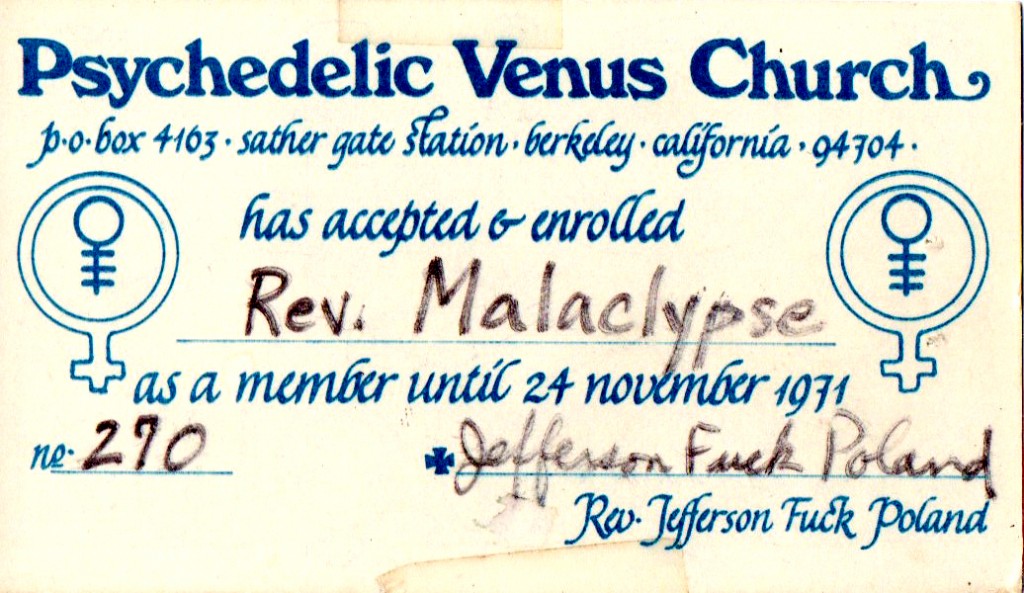 Psychedelic Venus Church
p.o. box 4163 · sather gate station · berkeley · california · 94704 ·
has accepted & enrolled
Rev. Malaclypse
as a member until 24 november 1971
no. 270
Jefferson Fuck Poland
Rev. Jefferson Fuck Poland